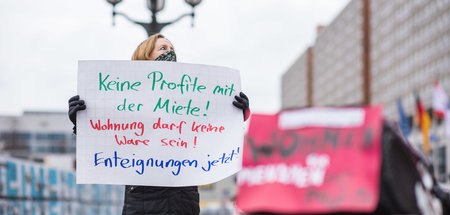 Keine Profite mit
der Miete!
Wohnung darf keine
Ware sein!
Enteignungen jetzt!
WOHNEN